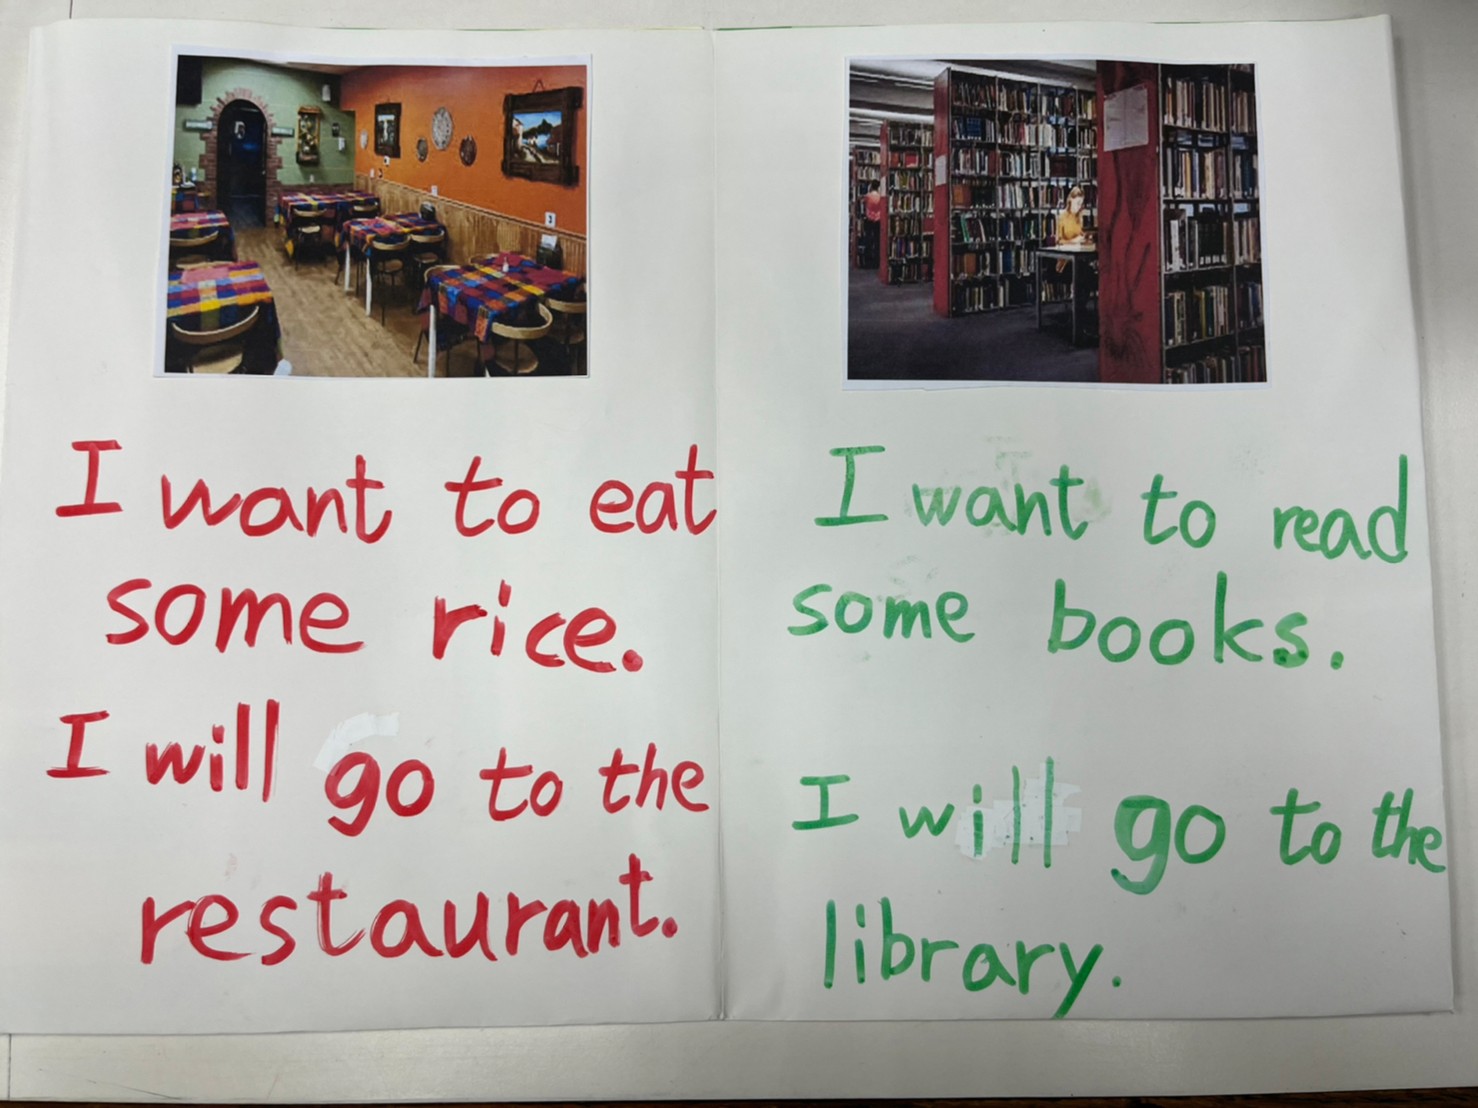 I want to eat
some rice.
I will go to the
restaurant.
I want to read
some books.
I will go to the
library.